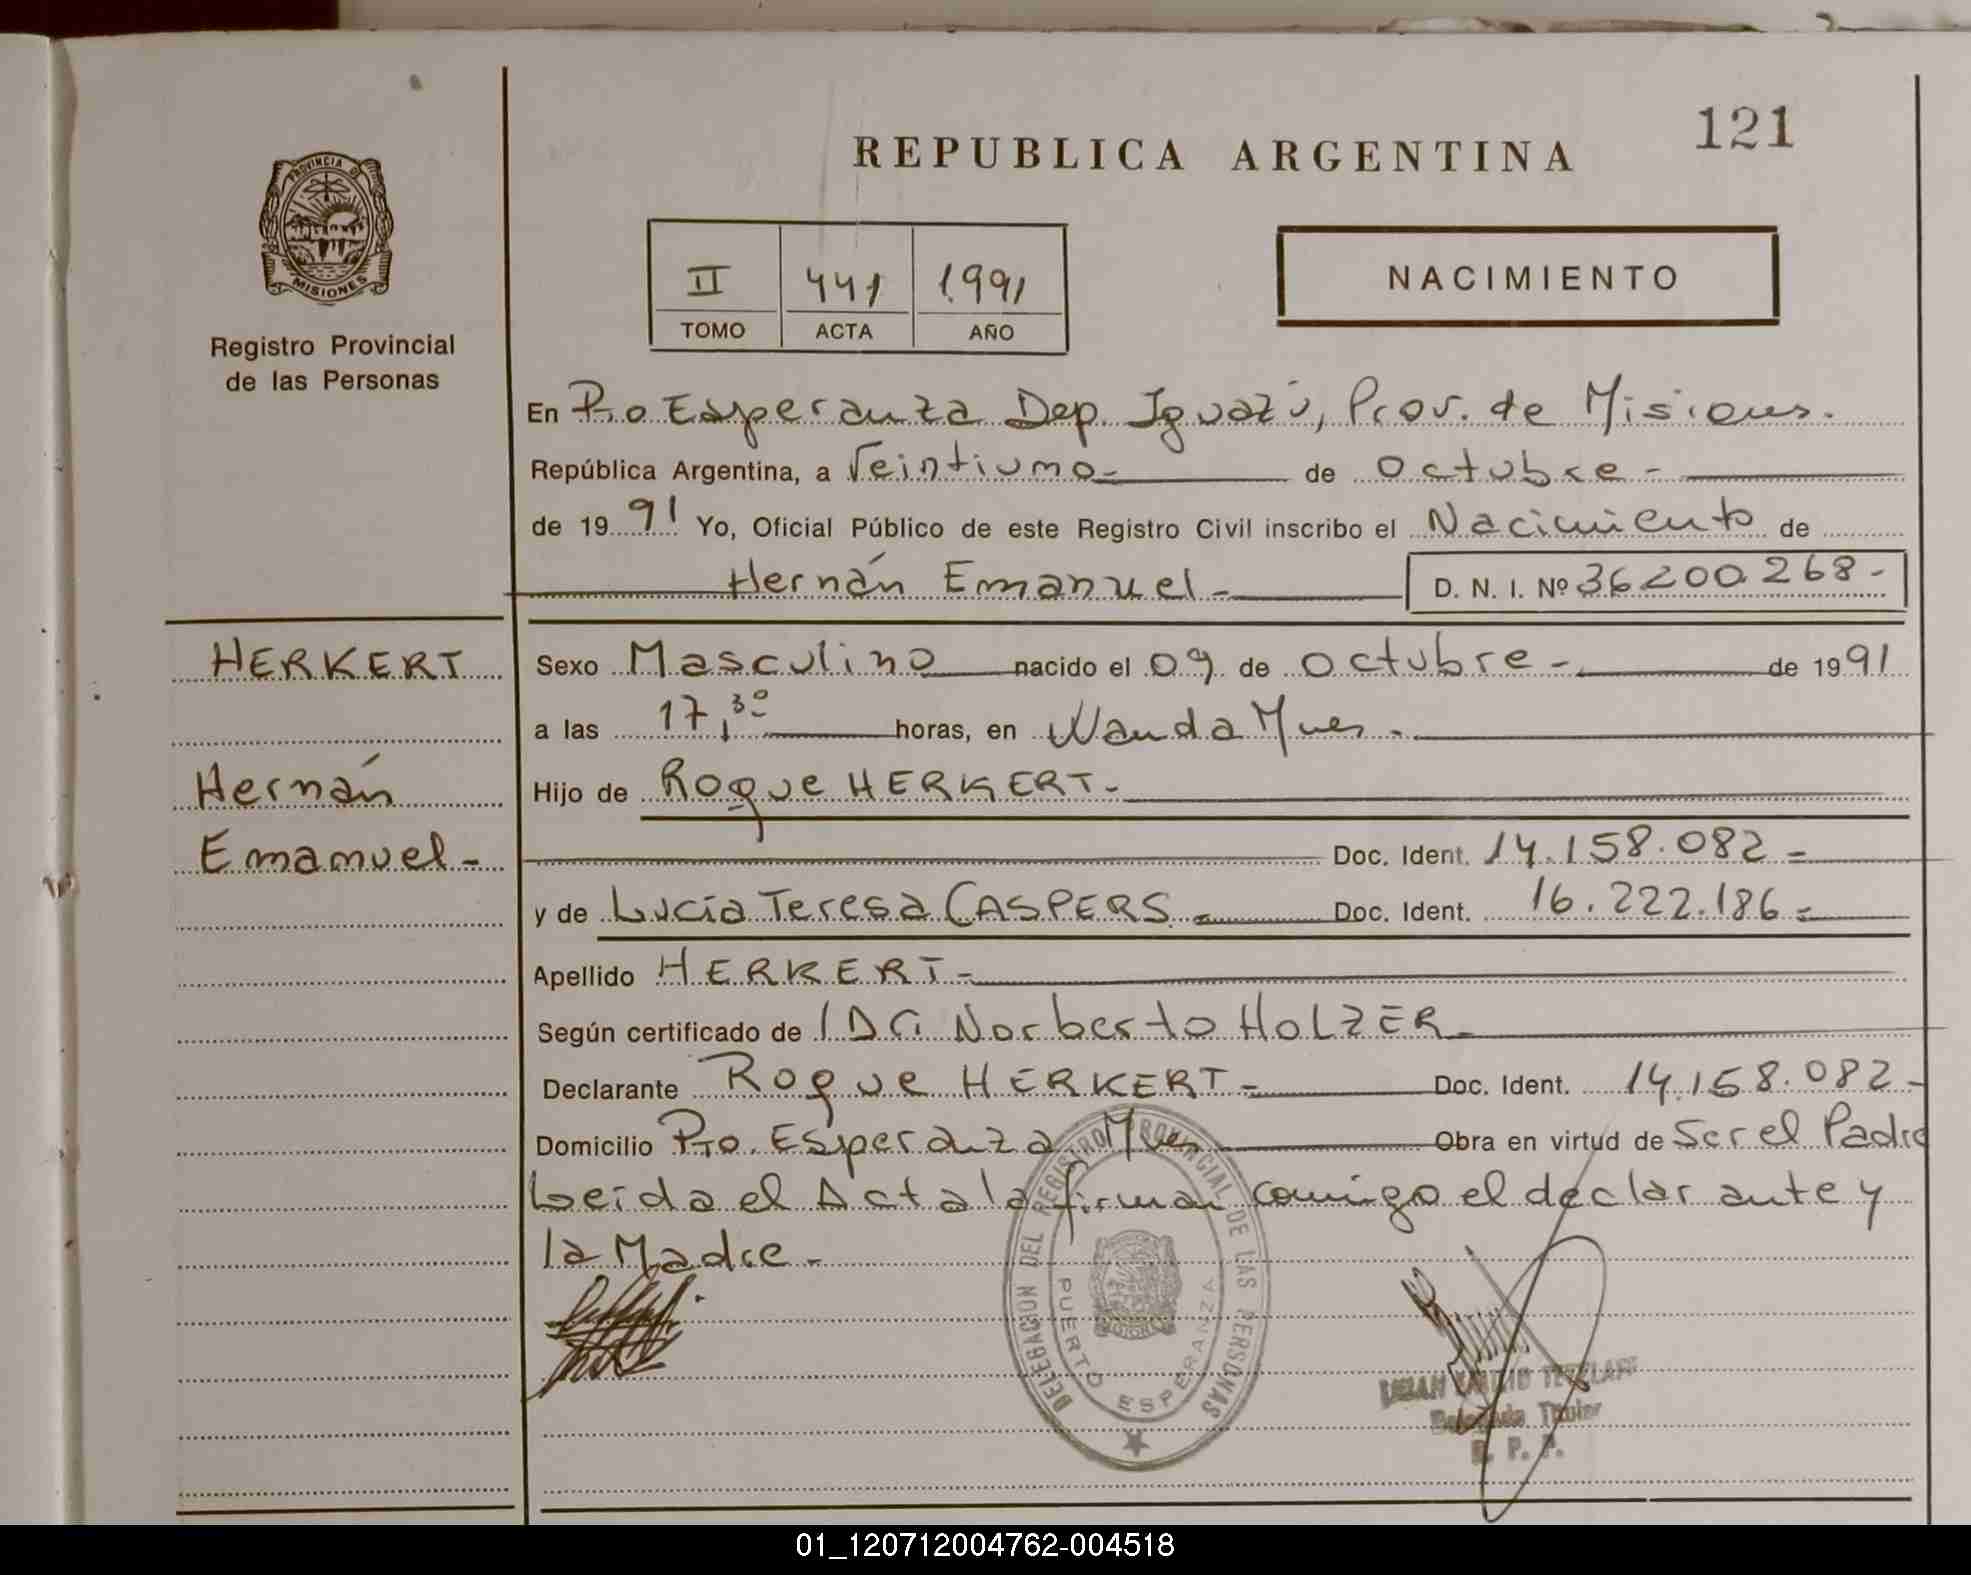 121
REPUBLICA ARGENTINA
PROVINCIA DE MISIONES
Registro Provincial
de las Personas
II 441 1991
TOMO ACTA AÑO
NACIMIENTO
En Pto Esperanza Dep. Iguazú, Prov. de Misiones.
República Argentina, a Veintiuno- de Octubre-
de 1991 Yo, Oficial Público de este Registro Civil inscribo el Nacimiento de
Hernán Emanuel- D. N. I. Nº 36200.268-
HERKERT
Hernán
Emanuel-
Sexo Masculino nacido el 09 de Octubre- de 1991
a las 17,30 horas, en Wanda Mnes.
Hijo de Roque HERKERT-
Doc. Ident. 14.158.082-
y de Lucía Teresa CASPERS- Doc. Ident. 16.222.186-
Apellido HERKERT-
Según certificado de Norberto HOLZER-
Declarante Roque HERKERT- Doc. Ident. 14.158.082-
Domicilio Pto. Esperanza Mnes Obra en virtud de Ser el Padre
Leida el Acta la firman comigo el declarante y
la Madre-
DELEGACION DEL REGISTRO PROVINCIAL DE LAS PERSONAS
PUERTO ESPERANZA
Titular
R. P. P.
01_120712004762-004518